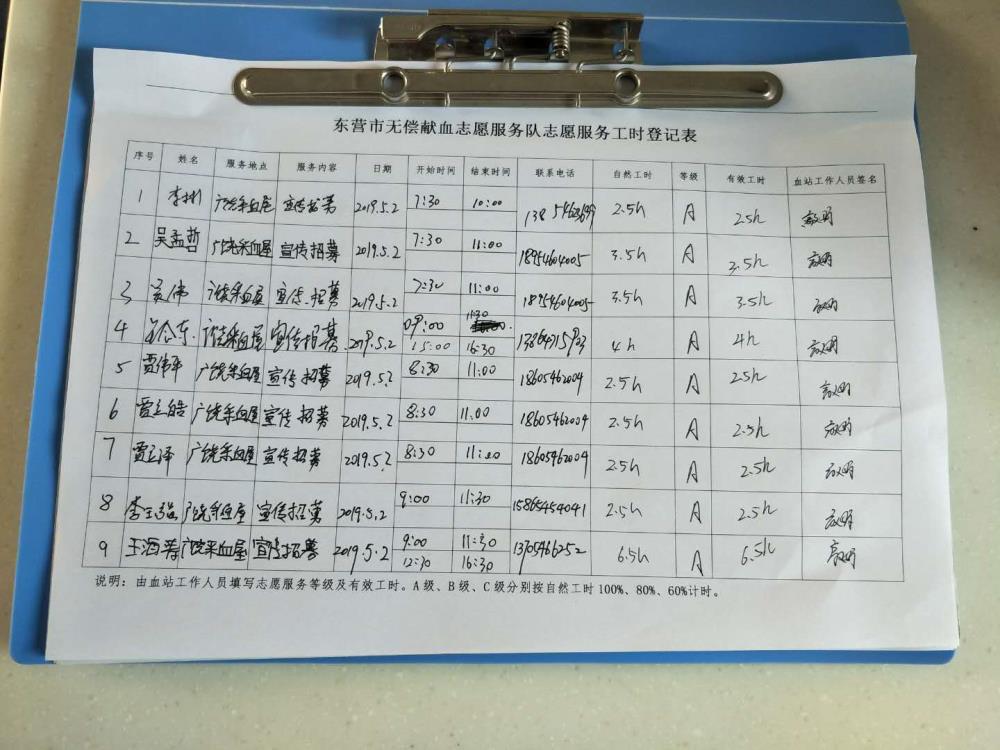 东营市无偿献血志愿服务队志愿服务工时登记表
序号 姓名 服务地点 服务内容 日期 开始时间 结束时间 联系电话 自然工时 等级 有效工时 血站工作人员签名
1 李彬 广饶采血屋 宣传招募 2019.5.2 7:30 10:00 2.5h A 2.5h
2 吴孟哲 广饶采血屋 宣传招募 2019.5.2 7:30 11:00 18954604005 3.5h A 3.5h
3 吴伟 广饶采血屋 宣传招募 2019.5.2 7:30 11:00 18954604005 3.5h A 3.5h
4 广饶采血屋 宣传招募 2019.5.2 09:00 11:30 4h A 4h
15:00 16:30
5 贾伟平 广饶采血屋 宣传招募 2019.5.2 8:30 11:00 18605462004 2.5h A 2.5h
6 贾立皓 广饶采血屋 宣传招募 2019.5.2 8:30 11:00 18605462004 2.5h A 2.5h
7 贾立泽 广饶采血屋 宣传招募 2019.5.2 8:30 11:00 18605462004 2.5h A 2.5h
8 李玉强 广饶采血屋 宣传招募 2019.5.2 9:00 11:30 15865454041 2.5h A 2.5h
9 广饶采血屋 宣传招募 2019.5.2 9:00 11:30 13705466252 6.5h A 6.5h
12:30 16:30
说明：由血站工作人员填写志愿服务等级及有效工时。A级、B级、C级分别按自然工时100%、80%、60%计时。